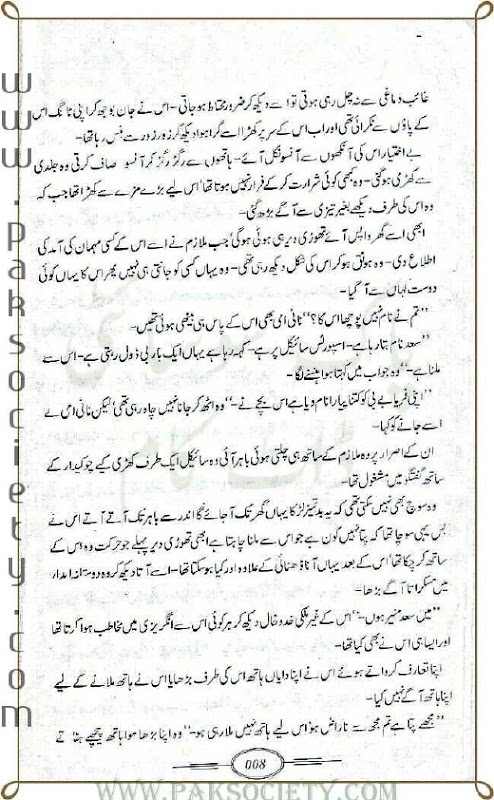 غائب دماغی سے نہ چل رہی ہوتی تو اسے دیکھ کر ضرور محتاط ہو جاتی۔ اس نے جان بوجھ کر اپنی ٹانگ اس
کے پاؤں سے ٹکرائی تھی اور اب اس کے سر پر کھڑا اسے گرا ہوا دیکھ کر زور زور سے ہنس رہا تھا۔
بے اختیار اس کی آنکھوں سے آنسو نکل آئے۔ ہاتھوں سے رگڑ رگڑ کر آنسو صاف کرتی وہ جلدی
سے کھڑی ہو گئی۔ وہ کبھی کوئی شرارت کر کے فرار نہیں ہوتا تھا' اس لیے بڑے مزے سے کھڑا تھا جب کہ
وہ اس کی طرف دیکھے بغیر تیزی سے آگے بڑھ گئی۔
ابھی اسے گھر واپس آئے تھوڑی دیر ہی ہوئی ہو گی' جب ملازم نے اسے اس کے کسی مہمان کی آمد کی
اطلاع دی۔ وہ ہونق ہو کر اس کی شکل دیکھ رہی تھی۔ وہ یہاں کسی کو جانتی ہی نہیں پھر اس کا یہاں کوئی
دوست کہاں سے آ گیا۔
"تم نے نام نہیں پوچھا اس کا؟" نانی امی بھی اس کے پاس ہی بیٹھی ہوئی تھیں۔
"سعد نام بتا رہا ہے۔ اسپورٹس سائیکل پر ہے۔ کہہ رہا ہے یہاں ایک باربی ڈول رہتی ہے۔ اس سے
ملنا ہے۔" وہ جواب میں کہتا ہوا ہنسنے لگا۔
"اپنی فریا بے بی کو کتنا پیارا نام دیا ہے اس بچے نے۔" وہ اٹھ کر جانا نہیں چاہ رہی تھی' لیکن نانی امی نے
اسے جانے کو کہا۔
ان کے اصرار پر وہ ملازم کے ساتھ ہی چلتی ہوئی باہر آئی وہ سائیکل ایک طرف کھڑی کیے چوکیدار کے
ساتھ گفتگو میں مشغول تھا۔
وہ سوچ بھی نہیں سکتی تھی کہ یہ بدتمیز لڑکا یہاں گھر تک آ جائے گا اندر سے باہر تک آتے آتے اس نے
بس یہی سوچا تھا کہ پتا نہیں کون ہے جو اس سے ملنا چاہتا ہے ابھی تھوڑی دیر پہلے جو حرکت وہ اس کے
ساتھ کر چکا تھا' اس کے بعد یہاں آنا ڈھٹائی کے علاوہ اور کیا ہو سکتا تھا۔ اسے آتا دیکھ کر وہ دوستانہ انداز
میں مسکراتا آگے بڑھا۔
"میں سعد منیر ہوں۔" اس کے غیر ملکی خدوخال دیکھ کر ہر کوئی اس سے انگریزی میں مخاطب ہوا کرتا تھا
اور ایسا ہی اس نے بھی کیا تھا۔
اپنا تعارف کرواتے ہوئے اس نے اپنا دایاں ہاتھ اس کی طرف بڑھایا اس نے ہاتھ ملانے کے لیے
اپنا ہاتھ آگے نہیں کیا۔
"مجھے پتا ہے تم مجھ سے ناراض ہو' اس لیے ہاتھ نہیں ملا رہی ہو۔" وہ اپنا بڑھا ہوا ہاتھ پیچھے ہٹاتے
008
www.paksociety.com
WWW.PAKSOCIETY.COM